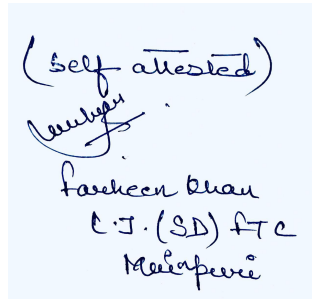 (self attested)
Farheen Khan
C.J. (SD) FTC
Mainpuri